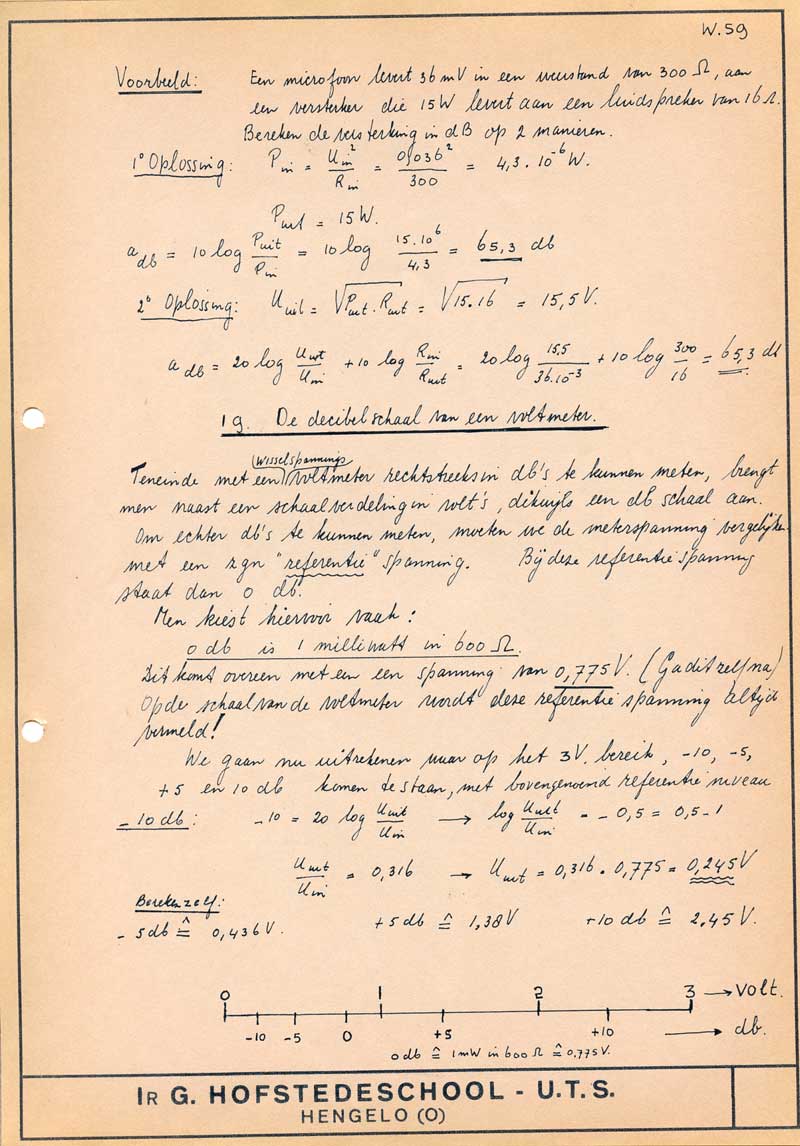 W.59
Voorbeeld: Een microfoon levert 36 mV in een weerstand van 300 Ω, aan
een versterker die 15 W levert aan een luidspreker van 16 Ω.
Bereken de versterking in dB op 2 manieren.
1° Oplossing: P in = U in² / R in = 0,036² / 300 = 4,3 . 10⁻⁶ W.
P uit = 15 W.
a db = 10 log P uit / P in = 10 log 15.10⁶ / 4,3 = 65,3 db
2° Oplossing: U uit = √P uit . R uit = √15.16 = 15,5 V.
a db = 20 log U uit / U in + 10 log R in / R uit = 20 log 15,5 / 36.10⁻³ + 10 log 300 / 16 = 65,3 db
1 g. De decibelschaal van een voltmeter.
Teneinde met een wisselspannings voltmeter rechtstreeks in db's te kunnen meten, brengt
men naast een schaalverdeling in volt's, dikwijls een db schaal aan.
Om echter db's te kunnen meten, moeten we de meterspanning vergelijken
met een zgn "referentie" spanning. Bij deze referentie spanning
staat dan 0 db.
Men kiest hiervoor vaak:
0 db is 1 milliwatt in 600 Ω.
Dit komt overeen met een een spanning van 0,775 V. (Ga dit zelf na)
Op de schaal van de voltmeter wordt deze referentie spanning altijd
vermeld!
We gaan nu uitrekenen waar op het 3 V. bereik, -10, -5,
+5 en 10 db komen te staan, met bovengenoemd referentie niveau
- 10 db: -10 = 20 log U uit / U in → log U uit / U in = - 0,5 = 0,5 - 1
U uit / U in = 0,316 → U uit = 0,316 . 0,775 = 0,245 V
Bereken zelf:
- 5 db ≙ 0,436 V. +5 db ≙ 1,38 V +10 db ≙ 2.45 V.
0 1 2 3 → Volt.
-10 -5 0 +5 +10 → db.
0 db ≙ 1 mW in 600 Ω ≙ 0.775 V.
IR G. HOFSTEDESCHOOL - U.T.S.
HENGELO (O)